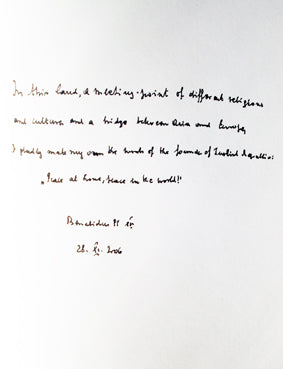 In this land, a meeting-point of different religions
and cultures and a bridge between Asia and Europe,
I gladly make my own the words of the founder of Turkish Republic:
„Peace at home, peace in the world!"
Benedictus PP XVI
28. XI. 2006